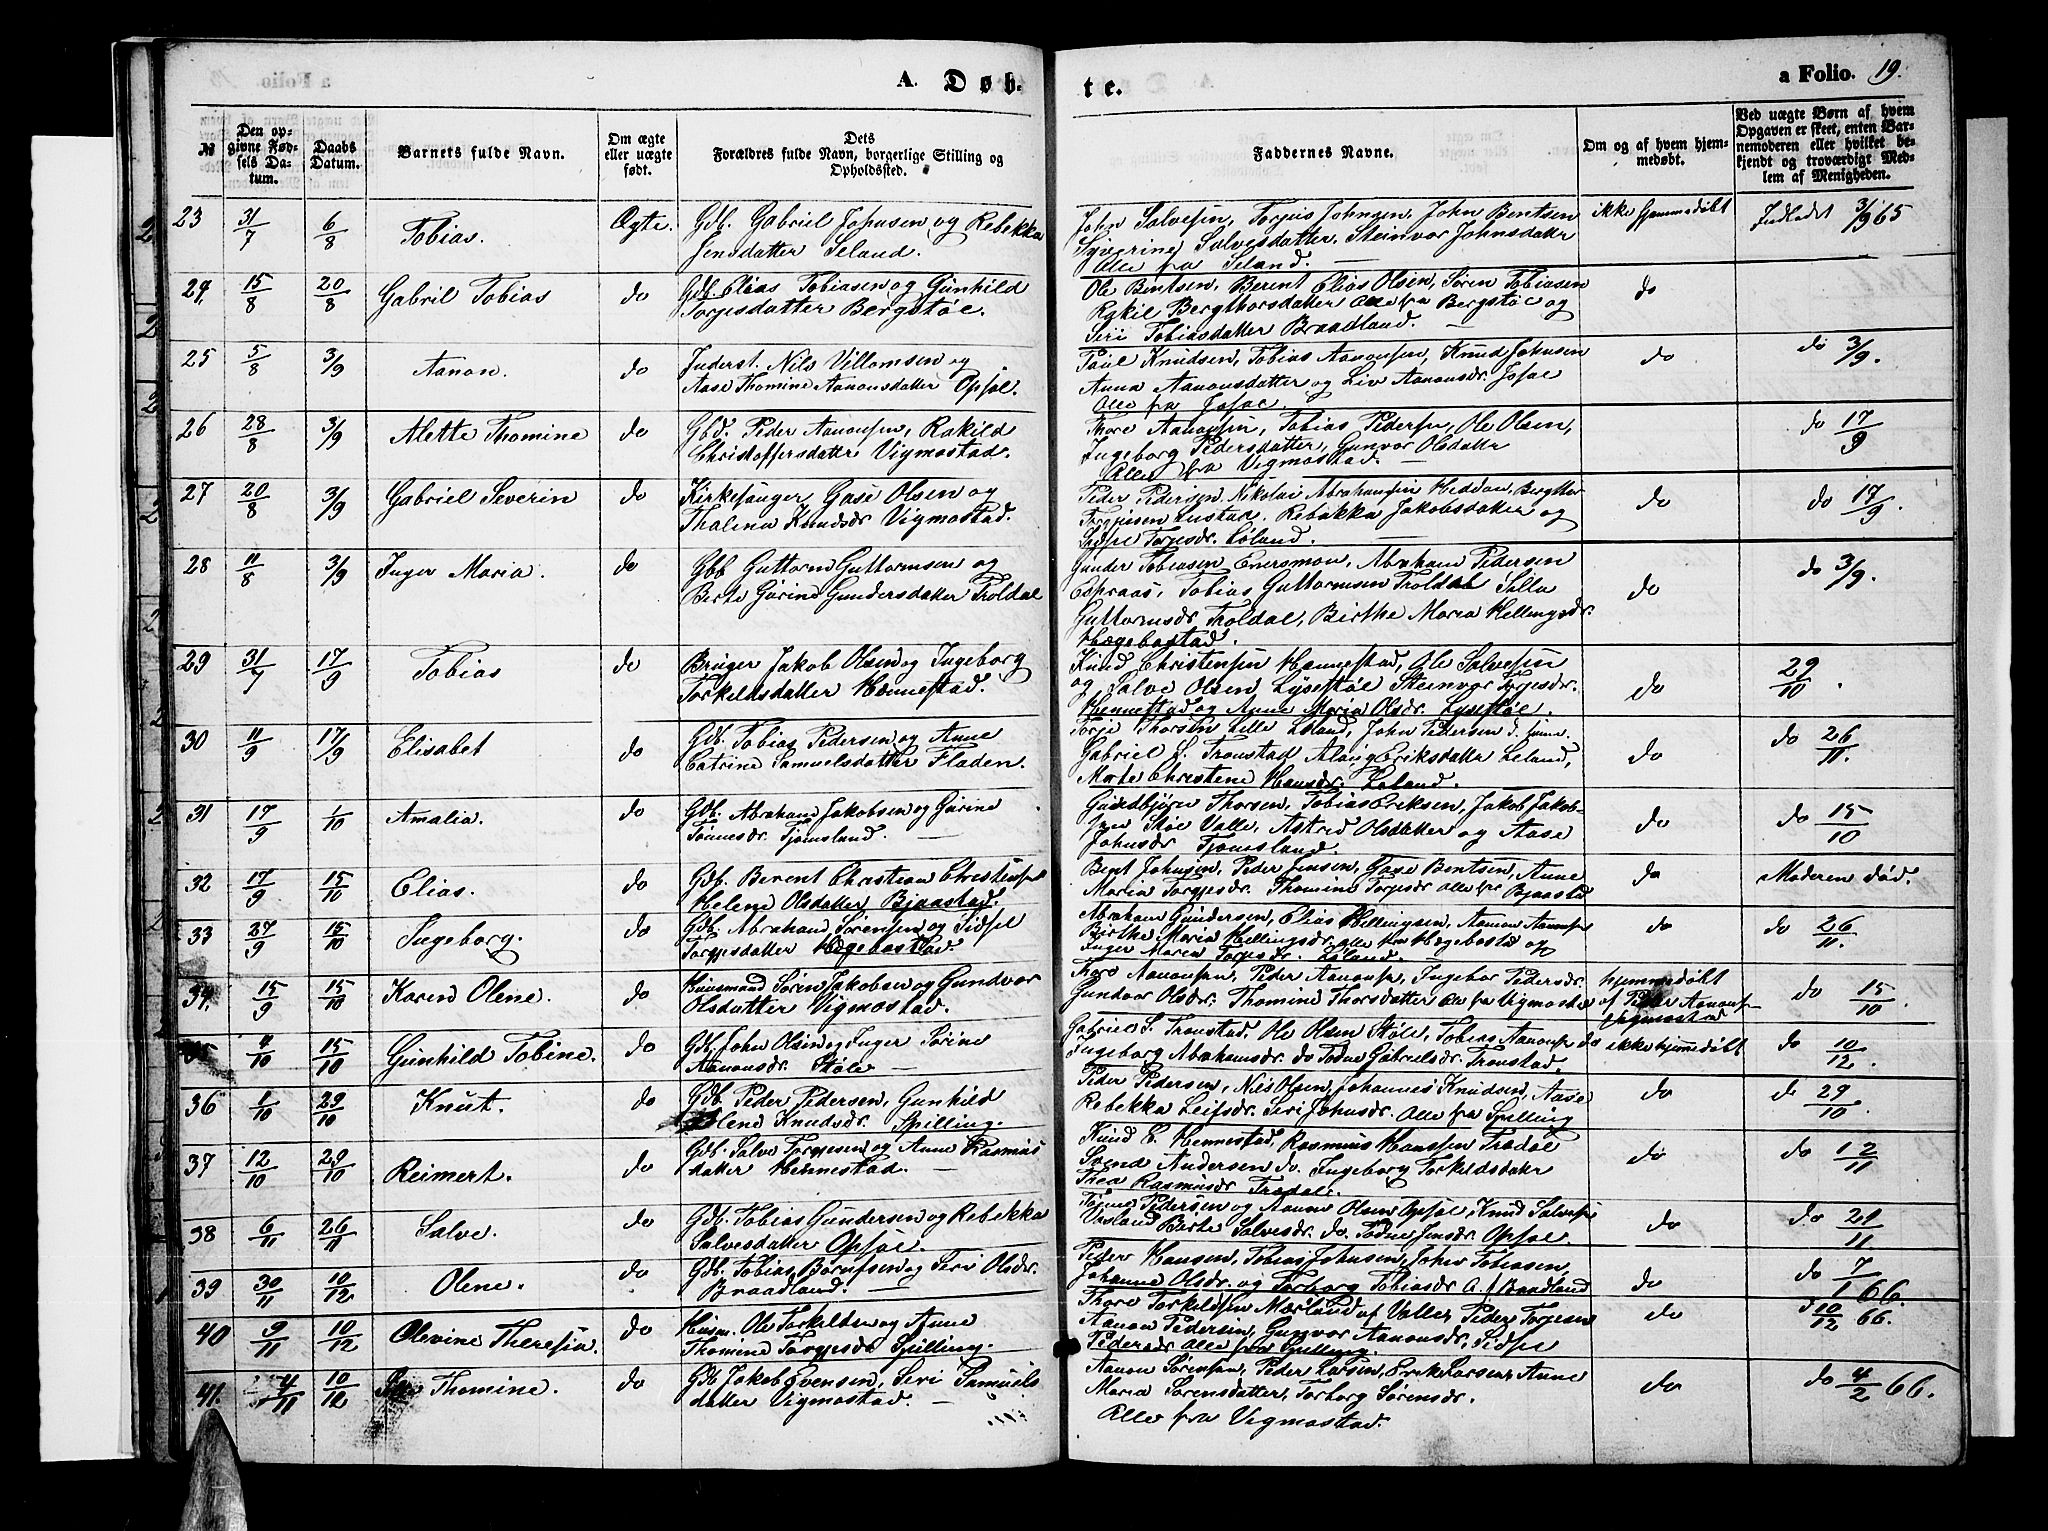 A. Døb-
te.
a Folio. 19.
№
Den op-
givne Fød-
sels Da-
tum.
Daabs
Datum.
Barnets fulde Navn.
Om ægte
eller uægte
født.
Dets
Forældres fulde Navn, borgerlige Stilling og
Opholdssted.
Faddernes Navne.
Om og af hvem hjem-
medøbt.
Ved uægte Børn af hvem
Opgaven er skeet, enten Bar-
nemoderen eller hvilket be-
kjendt og troværdigt Med-
lem af Menigheden.
23 31/7 6/8 Tobias. Ægte. Gdb. Gabriel Johnsen og Rebekka
Jensdatter Seland.
John Salvesen, Torjus Johnsen, John Bentsen
Syverine Salvesdatter, Steinvor Johnsdattr
Alle fra Seland.
ikke hjemmedøbt Indledet 3/9 65
24. 15/8 20/8 Gabril Tobias do Gdb. Elias Tobiasen og Gunhild
Torjesdatter Bergstøe.
Ole Bentsen, Berent Elias Olsen, Søren Tobiasen
Rakil Bergthorsdatter Alle fra Bergstøe og
Seri Tobiasdatter Braadland.
do
25 5/8 3/9 Aanon. do Inderst. Nils Villomsen og
Aase Thomine Aanonsdatter Opsøl.
Paul Knudsen, Tobias Aanonsen, Knud Johnsen
Anna Aanonsdatter og Liv Aanonsdr. Josøe
Alle fra Josøe.
do do 3/9.
26 28/8 3/9 Alette Thomine do Gbd. Peder Aanonsen, Rakild
Christoffersdattr Vigmostad.
Thore Aanonsen, Tobias Pedersen, Ole Olsen,
Ingeborg Pedersdatter, Gunvor Olsdattr
Alle fra Vigmostad.
do 17/9
27 20/8 3/9 Gabriel Severin do Kirkesanger Gase Olsen og
Thalena Knudsdr. Vigmostad.
Peder Pedersen, Nikolai Abrahamsen Heddan, Bergthor
Torgjusen Rebekka Jakobsdatter og
Sidsel Torjesdr. Løland.
do do 17/9.
28 11/8 3/9 Inger Maria. do Gbb Guttorm Guttormsen og
Berte Gurine Gundersdatter Troldal
Gunder Tobiasen Abraham Pedersen
Tobias Guttormsen Troldal
Guttormsdr. Troldal, Birthe Maria Hellingsdr.
Hægebostad.
do do 3/9.
29 31/7 17/9 Tobias do Bruger Jakob Olsen og Ingeborg
Torkeldsdatter Hennestad.
Knud Christensen Hennestad, Ole Salvesen
og Salve Olsen Lysestøl Steinvor Torjesdr.
Hennestad og Anne Maria Olsdr. Lysestøl.
do 29/10.
30 11/9 17/9 Elisabet do Gdb. Tobias Pedersen og Anne
Catrine Samuelsdatter Fladen.
Torje Thorsen Lille Løland, John Pedersen
Gabriel S. Tronstad, Eriksdatter Leland,
Marte Christene Hansdr. Løland.
do do 26/11.
31 17/9 1/10 Amalia. do Gdb. Abraham Jakobsen og Gurine
Tønnesdr. Tjomsland.
Gudbjørn Thorsen, Tobias Eriksen, Jakob Jakob-
sen Støe Valle, Astrid Olsdatter og Aase
Johnsdr Tjomsland.
do do 15/10
32 17/9 15/10 Elias. do Gdb. Berent Christian Christensen
Helene Olsdatter Bjaastad.
Bent Johnsen, Peder Jensen, Gase Bentsen, Anne
Maria Torgjesdr. Thomine Torjesdr alle fra Bjaastad
do Moderen død.
33 27/9 15/10 Ingeborg. do Gdb. Abraham Sørensen og Sidsel
Torgjesdatter Hægebostad.
Abraham Gundersen, Elias Hellingsen, Aanon Aanonsen
Birthe Maria Hellingsdr. alle fra Hægebostad og
Inger Maria Torjesdr. Løland.
do do 26/11.
34. 15/9 15/10 Karen Olene. do Huusmand Søren Jakobsen og Gundvor
Olsdatter Vigmostad.
Thore Aanonsen, Peder Aanonsen, Ingebor Pedersdr.
Gundvor Olsdr. Thomine Thorsdatter Alle fra Vigmostad
hjemmedøbt
af Peder Aanonsen
Vigmostad
do 15/10
35 4/10 15/10 Gunhild Tobine. do Gdb. John Olsen og Inger Sørine
Aanonsdr. Støle
Gabriel S. Tronstad, Ole Olsen Støle, Tobias Aanonsen do
Ingeborg Abrahamsdr. do Todne Gabrielsdr. Tronstad.
ikke hjemmedøbt do 10/12.
36 1/10 29/10 Knut. do Gdb. Peder Pedersen, Gunhild
Olene Knudsdr. Spilling.
Peder Pedersen, Niels Olsen, Johannes Knudsen, Aase
Rebekka Leifsdr. Seri Johnsdr. Alle fra Spilling
do do 29/10
37 12/10 29/10 Reimert. do Gdb. Salve Torgjesen og Anne Rasmus
datter Hennestad.
Knud C. Hennestad, Rasmus Hanssen Trædal
Svend Andersen do. Ingeborg Torkeldsdattr
Thea Rasmusdr Trædal.
do do 12/11
38 6/11 26/11 Salve. do Gdb. Tobias Gundersen og Rebekka
Salvesdatter Opsøl.
Tønnes Pedersen og Aanon Olsen Opsøl, Knud Salvesen
Birte Salvesdr. do. Todne Jensdr. Opsøl.
do do 29/11
39 30/11 10/12 Olene. do Gdb. Tobias Børufsen og Seri Olsdr.
Braadland.
Peder Hansen, Tobias Johnsen, John Tobiasen,
Johanne Olsdr. og Torborg Tobiasdr A. f Braadland
do do 7/1 66.
40 9/11 10/12 Olevine Theresia. do Husm. Ole Torkeldsen og Anne
Thomine Torgjesdr Spilling.
Thore Torkeldsen Mærland af Valle, Peder Torjesen
Aanon Pedersen, Gunvor Aanonsdr. Sidsel
Pedersdr Alle fra Spilling.
do d 10/12 66.
41. 4/11 10/12 Thomine. do Gdb Jakob Evensen, Seri Samuels
datter Vigmostad.
Aanon Sørensen, Peder Larsen, Erik Larsen, Anne
Maria Sørensdatter, Torborg Sørensdr.
Alle fra Vigmostad.
do do 4/2 66.